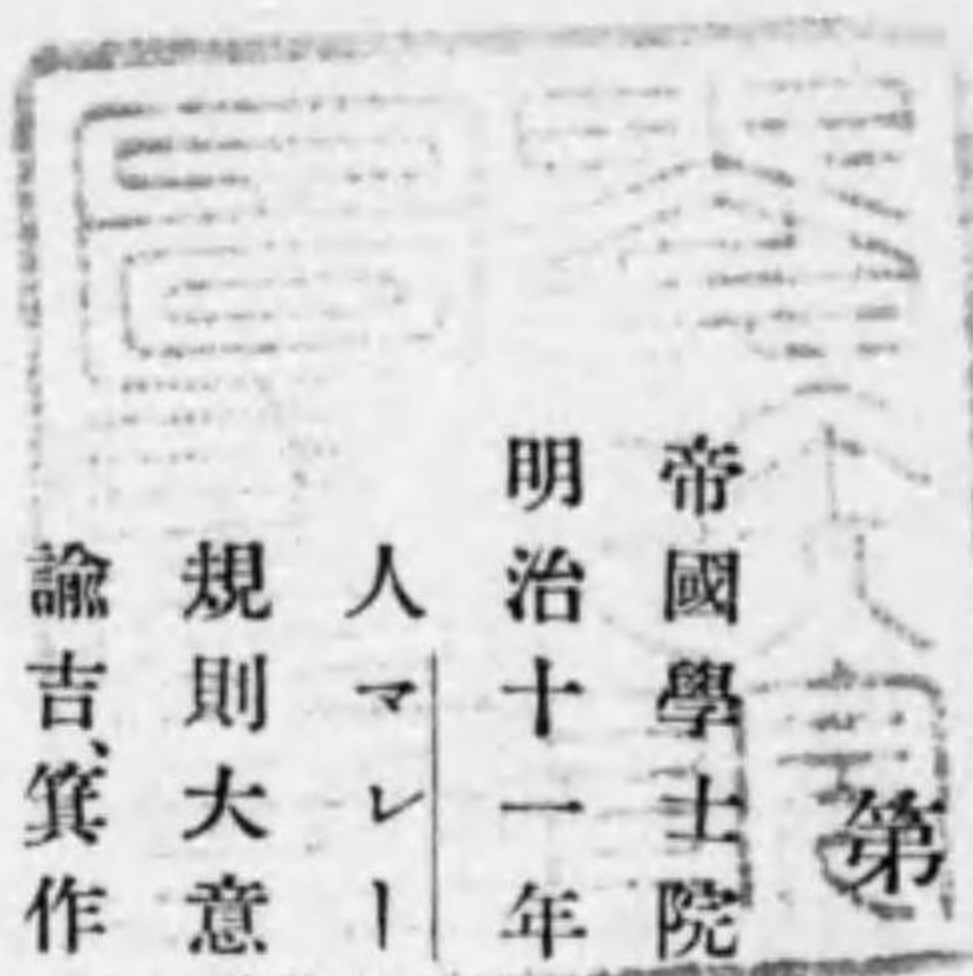 第
帝國學士院
明治十一年
人マレー
規則大意
諭吉、箕作